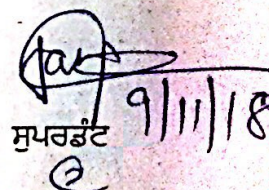 9/11/18
ਸੁਪਰਡੰਟ